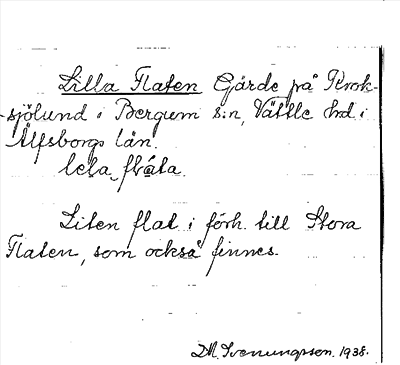 Lilla Flaten Gärde på Krok-
-sjölund i Bergum s:n, Vättle hd i
Älfsborgs län.
lela flata.
Liten flat i förh. till Stora
Flaten, som också finnes.
D.M. Svenungsson. 1938.